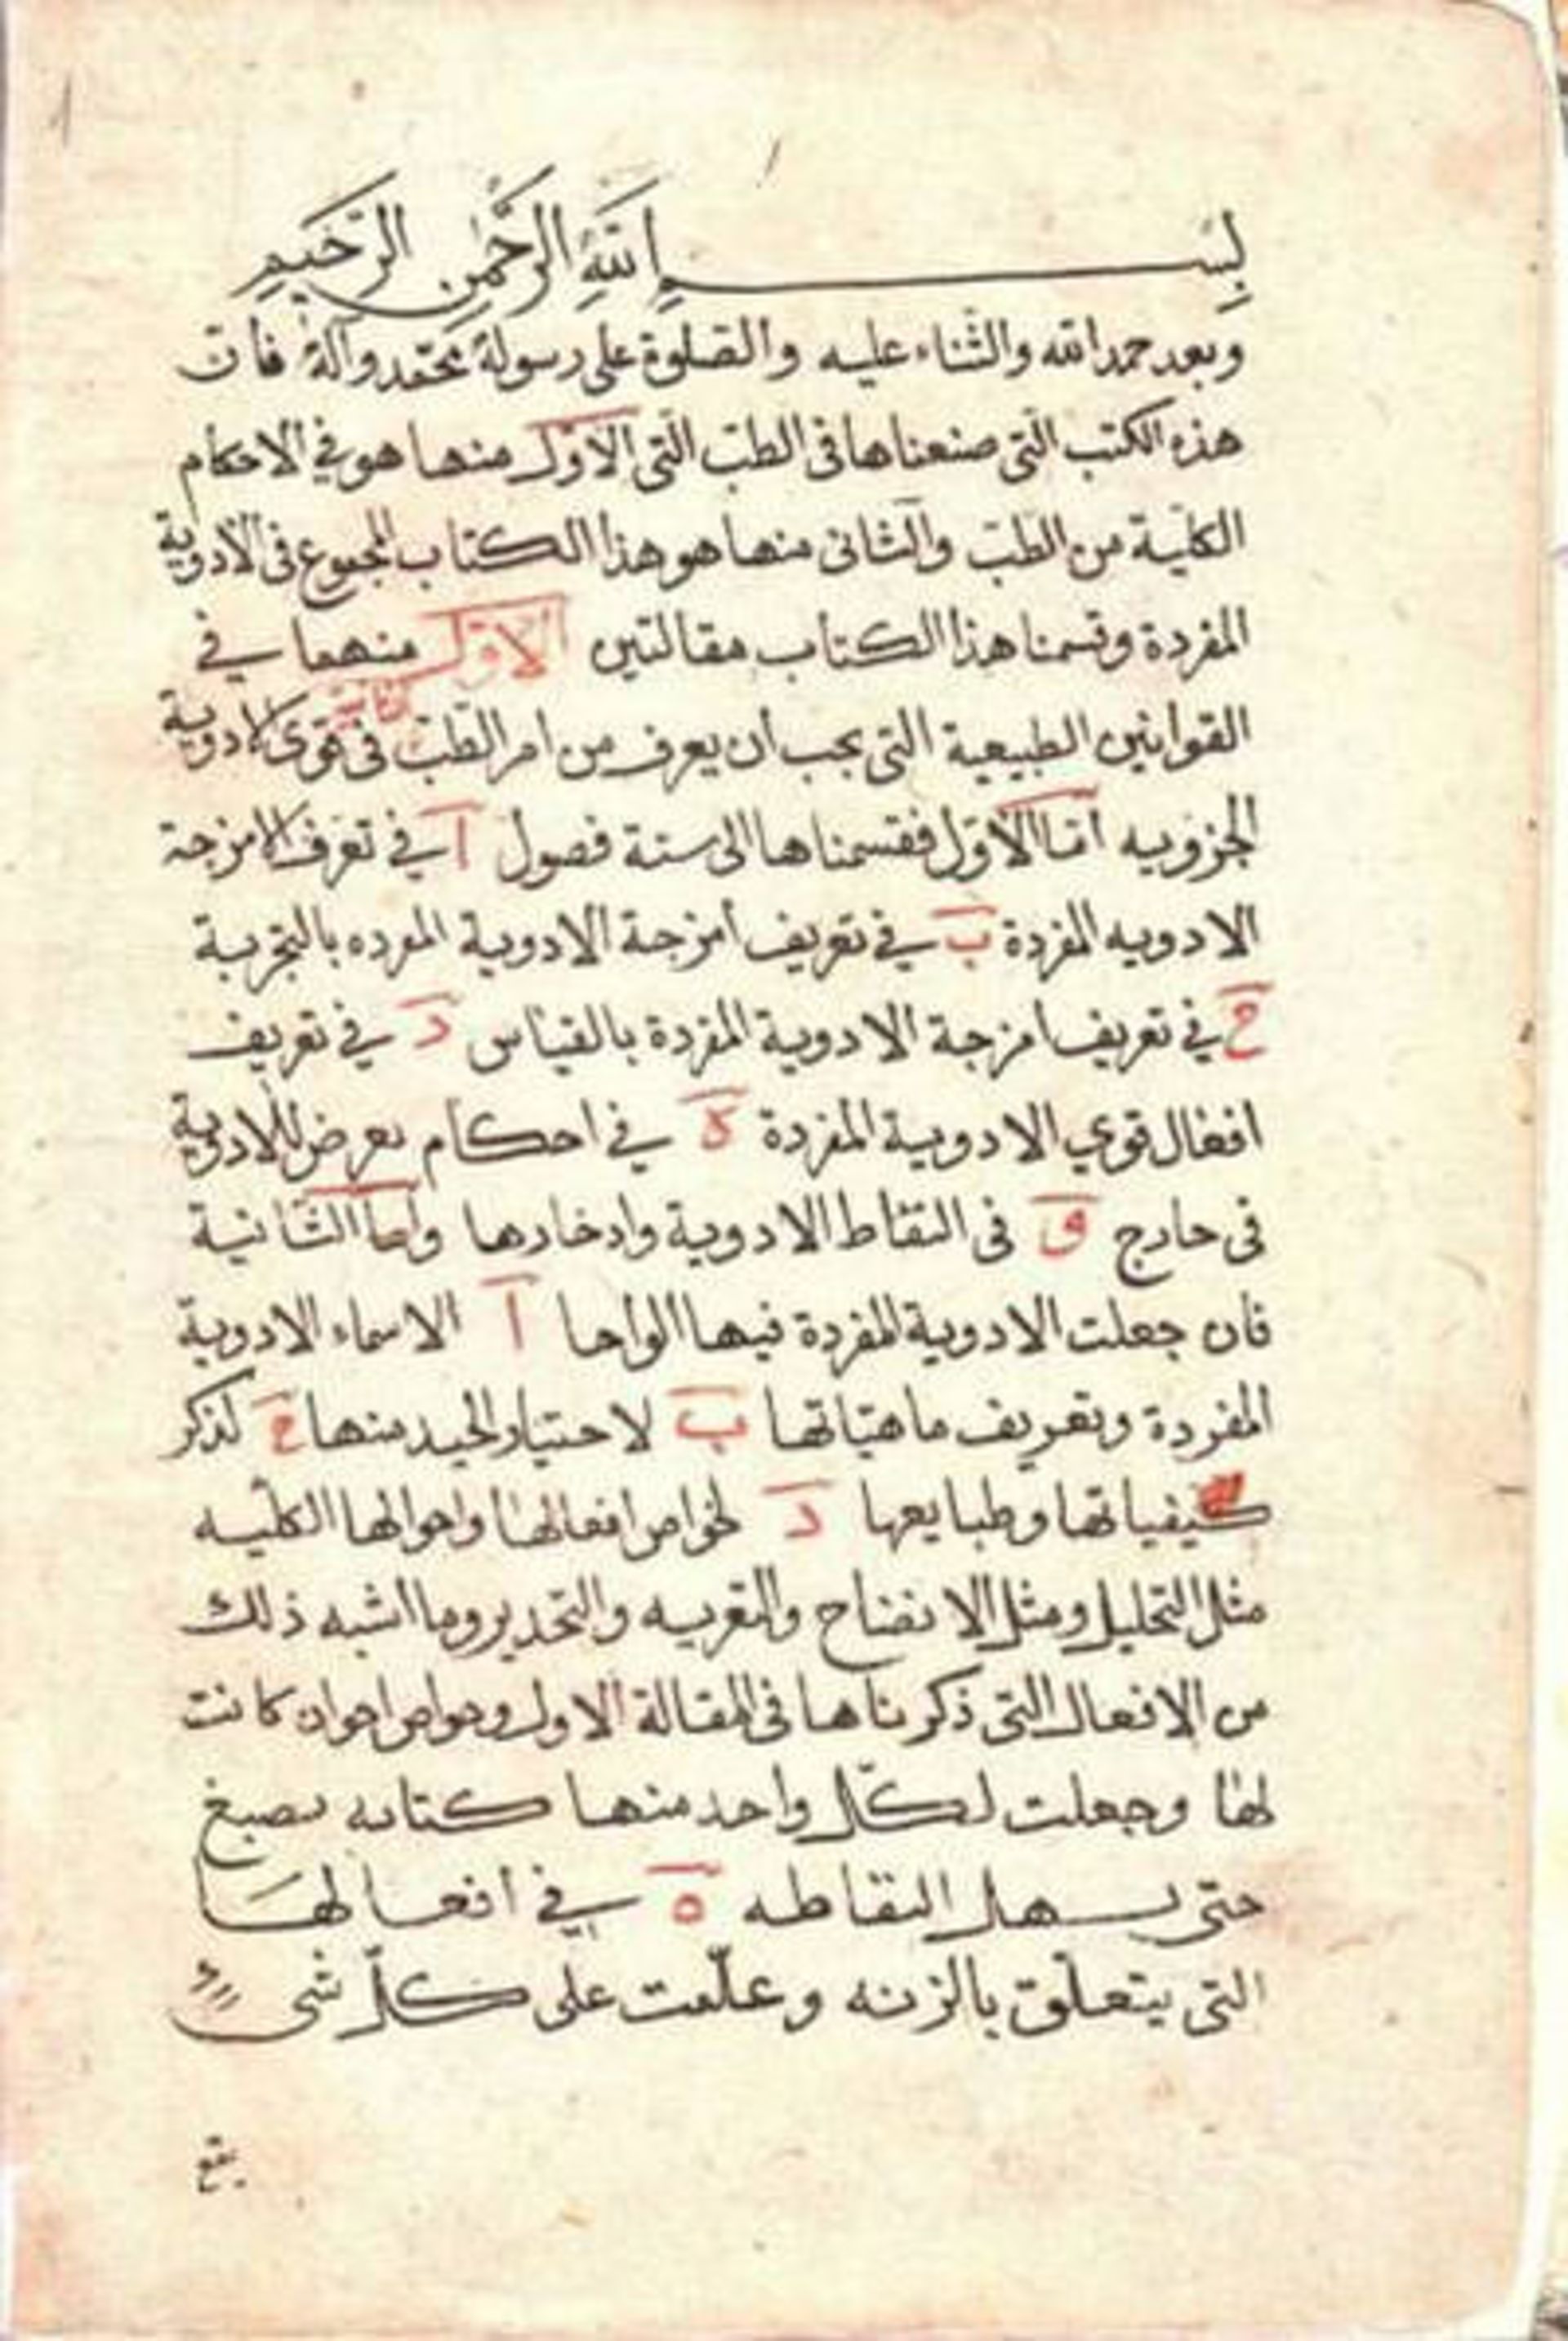 بسم الله الرحمن الرحيم
وبعد حمد الله والثناء عليه والصلوة على رسوله محمد وآله فان
هذه الكتب التى صنعناها فى الطب التى الاول منها هو في الاحكام
الكلية من الطب والثانى منها هو هذا الكتاب المجموع فى الادوية
المفردة وقسمنا هذا الكتاب مقالتين الاول منهما في
القوانين الطبيعية التى يجب أن يعرف من امر الطب الثانية فى قوى الادوية
الجزويه امّا الاول فقسمناها الى ستة فصول ا في تعرف الامزجة
الادويه المفردة ب في تعريف أمزجة الادوية المفرده بالتجربة
ج في تعريف امزجة الادوية المفردة بالقياس د في تعريف
افعال قوي الادوية المفردة ه في احكام تعرض للادوية
فى خارج و فى التقاط الادوية وادخارها وأما الثانية
فان جعلت الادوية المفردة فيها الواحا ا الاسماء الادوية
المفردة وتعريف ماهيّاتها ب لاختيار الجيد منها ج لذكر
كيفياتها وطبايعها د لخواص افعالها واحوالها الكليه
مثل التحليل ومثل الانضاح والتغريه والتخدير وما اشبه ذلك
من الافعال التى ذكرناها فى المقالة الاول وخواص اخوان كانت
لها وجعلت لكل واحد منها كتابه بصبغ
حتى يسهل التقاطه ه في افعالها
التى يتعلّق بالزنه وعلّمت على كلّ شى
بقع